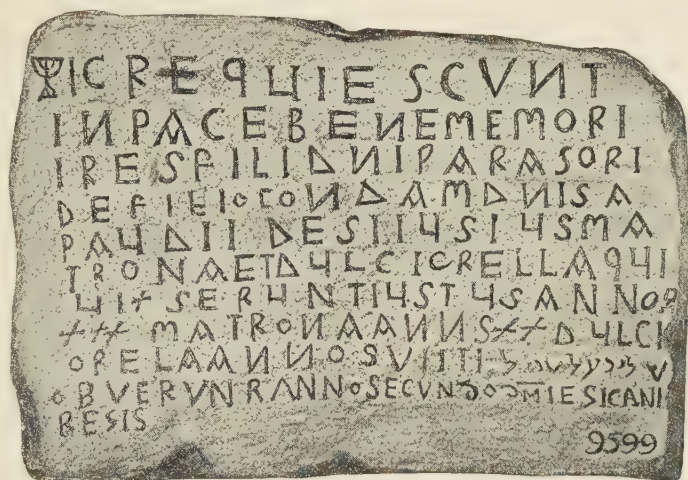 IC REQUIESCVNT
IN PACE BENEMEMORI
IRES FILI DNI PARASORI
DE FILIO CONDAM DNI SA
PAUDI I DESI IUSIUS MA
TRONA ET DULCICRELLA QUI
UIXSERUNT IUSTUS ANNOR
XXX MATRONA ANNS XX DULCI
ORELA ANNOS VIIII
OBVERVN R ANNO SECVNDO DMI ESICANI
RESIS
9599